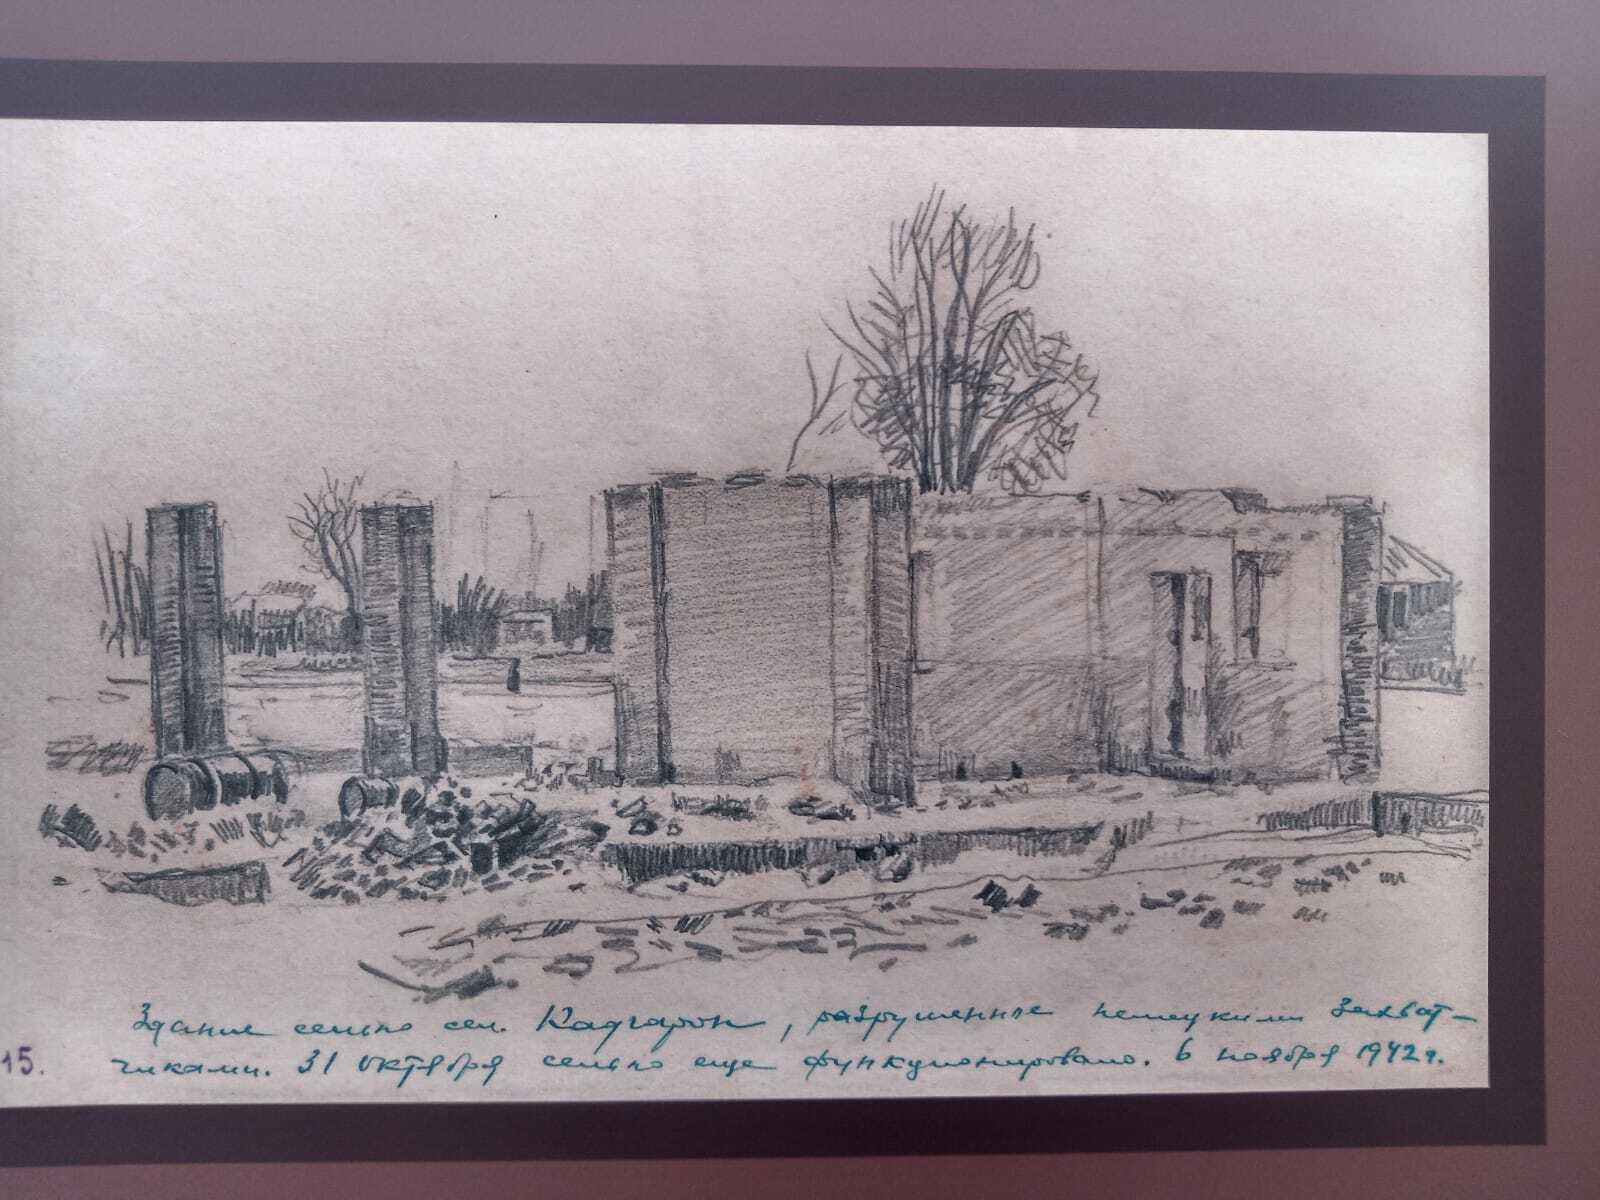 Здание сельпо сел. Кадгарон, разрушенные немецкими захват-
чиками. 31 октября сельпо еще функционировало. 6 ноября 1942 г.
15.